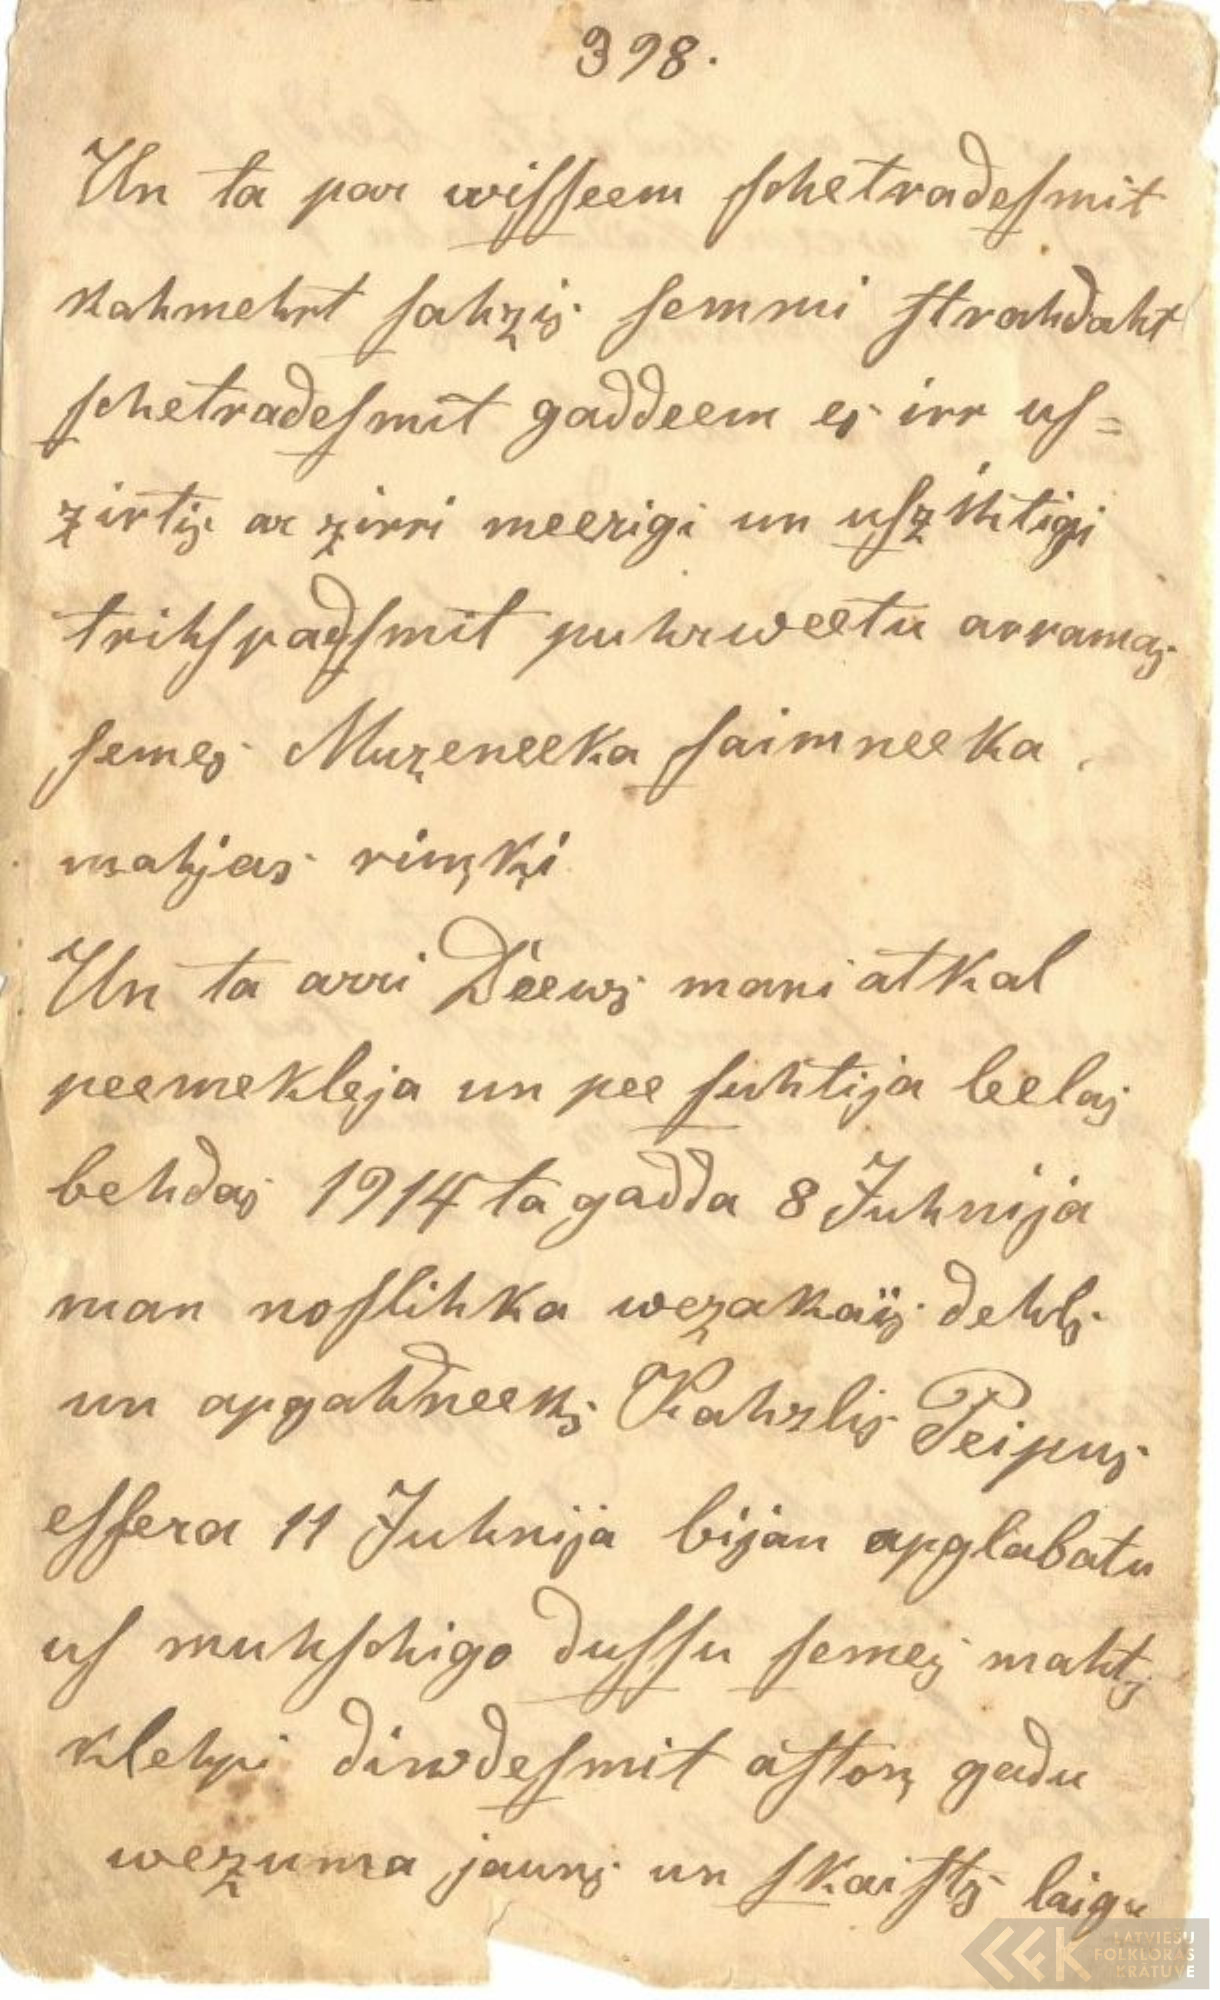 398.
Un ta par wisseem schetradesmit
kahmehrt sahzis semmi strahdaht
schetradesmit gaddeem es irr us=
zirtis ar zirri meerigi un uszihtigi
trihspadsmit puhrweetu arramas
semes Muzeneeka saimneeka
mahjas rinķi
Un ta arri Deews mani atkal
peemekleja un pee suhtija leelas
behdas 1914 ta gadda 8 Juhnija
man noslihka wezakais dehls
un apgahdneeks Kahrlis Peipus
essera 11 Juhnija bijau apglabatu
us muhschigo dussu semes mahts
klehpi diwdesmit aston gadu
wezuma jauns un skaists laigu
LATVIEŠU
FOLKLORAS
KRĀTUVE